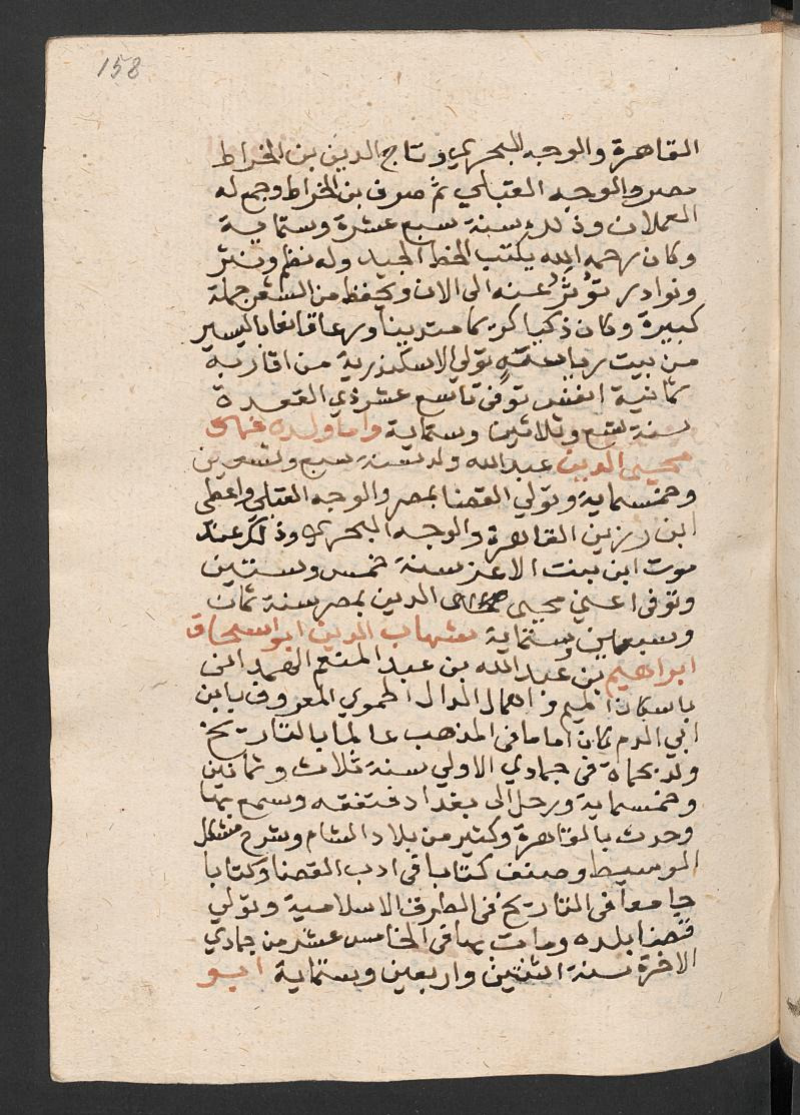 158
القاهرة والوجه البحري وتاج الدين بن الخراط
مصر والوجه القبلي ثم صرف بن الخراط وجمع له
العملان وذلك سنة سبع عشرة وستماية
وكان رحمه الله يكتب الخط الجيد وله نظم ونثر
ونوادر تؤثر عنه الى الان ويحفظ من الشعر جملة
كبيرة وكان ذكيا كريما متدينا ورعا قانعا باليسير
من بيت رياسة تولي الاسكندرية من اقاربه
ثمانية انفس توفى تاسع عشر ذي القعدة
سنة تسع وثلاثين وستماية واما ولده فهو
محيى الدين عبدالله ولد سنة سبع وتسعين
وخمسماية وتولي القضا بمصر والوجه القبلي واعطى
ابن رزين القاهرة والوجه البحري وذلك عند
موت ابن بنت الاعز سنة خمس وستين
وتوفى اعني محيى الدين بمصر سنة ثمان
وسبعين وستماية شهاب الدين ابو اسحاق
ابراهيم بن عبدالله بن عبد المنعم الهمدانى
باسكان الميم واهمال الدال الحموي المعروف بابن
ابي الدم كان اماما فى المذهب عالما بالتاريخ
ولد بحماة فى جمادي الاولي سنة ثلاث وثمانين
وخمسماية ورحل الى بغداد فتفقه وسمع بها
وحدث بالقاهرة وكثير من بلاد الشام وشرح مشكل
الوسيط وصنف كتابا فى ادب القضا وكتابا
جامعا فى التاريخ فى الطرف الاسلامية وتولي
قضا بلده ومات بها فى الخامس عشر من جمادي
الاخرة سنة اثنتين واربعين وستماية ابو